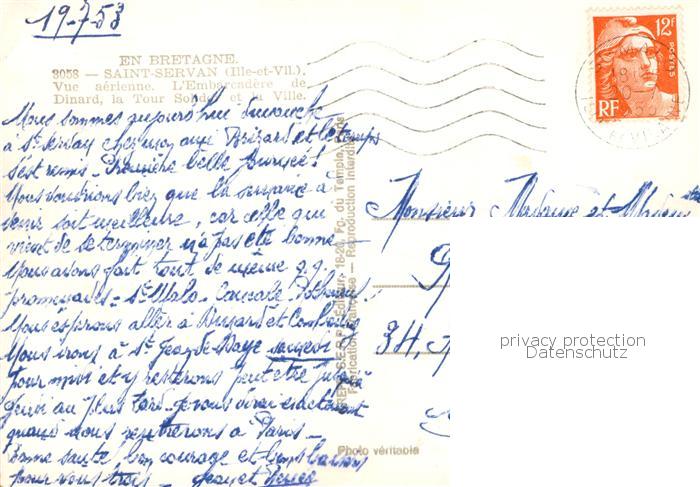 19-7-53
EN BRETAGNE.
3058 — SAINT-SERVAN (Ille-et-Vil.)
Vue aérienne. L'Embarcadère de
Dinard, la Tour Solidor et la Ville.
Nous sommes aujourd'hui dimanche
à St Servan chez mon ami Brizard et le temps
s'est remis - Première belle journée !
Nous voudrions bien que la semaine à
venir soit meilleure, car celle qui
vient de se terminer n'a pas été bonne -
Nous avons fait tout de même q.q.
promenades - St Malo - Cancale
Nous espérons aller à Dinard et
Nous irons à St Jean de Maye
pour midi et y resterons peut être jusqu'à
jeudi au plus tard - je vous dirai exactement
quand nous rentrerons à Paris -
Bonne santé bon courage et bons baisers
pour vous trois -
12F
POSTES
RF
Monsieur Madame et
34,
18-20, Fg. du Temple, Paris
Fabrication Française — Reproduction Interdite
Photo véritable
privacy protection
Datenschutz